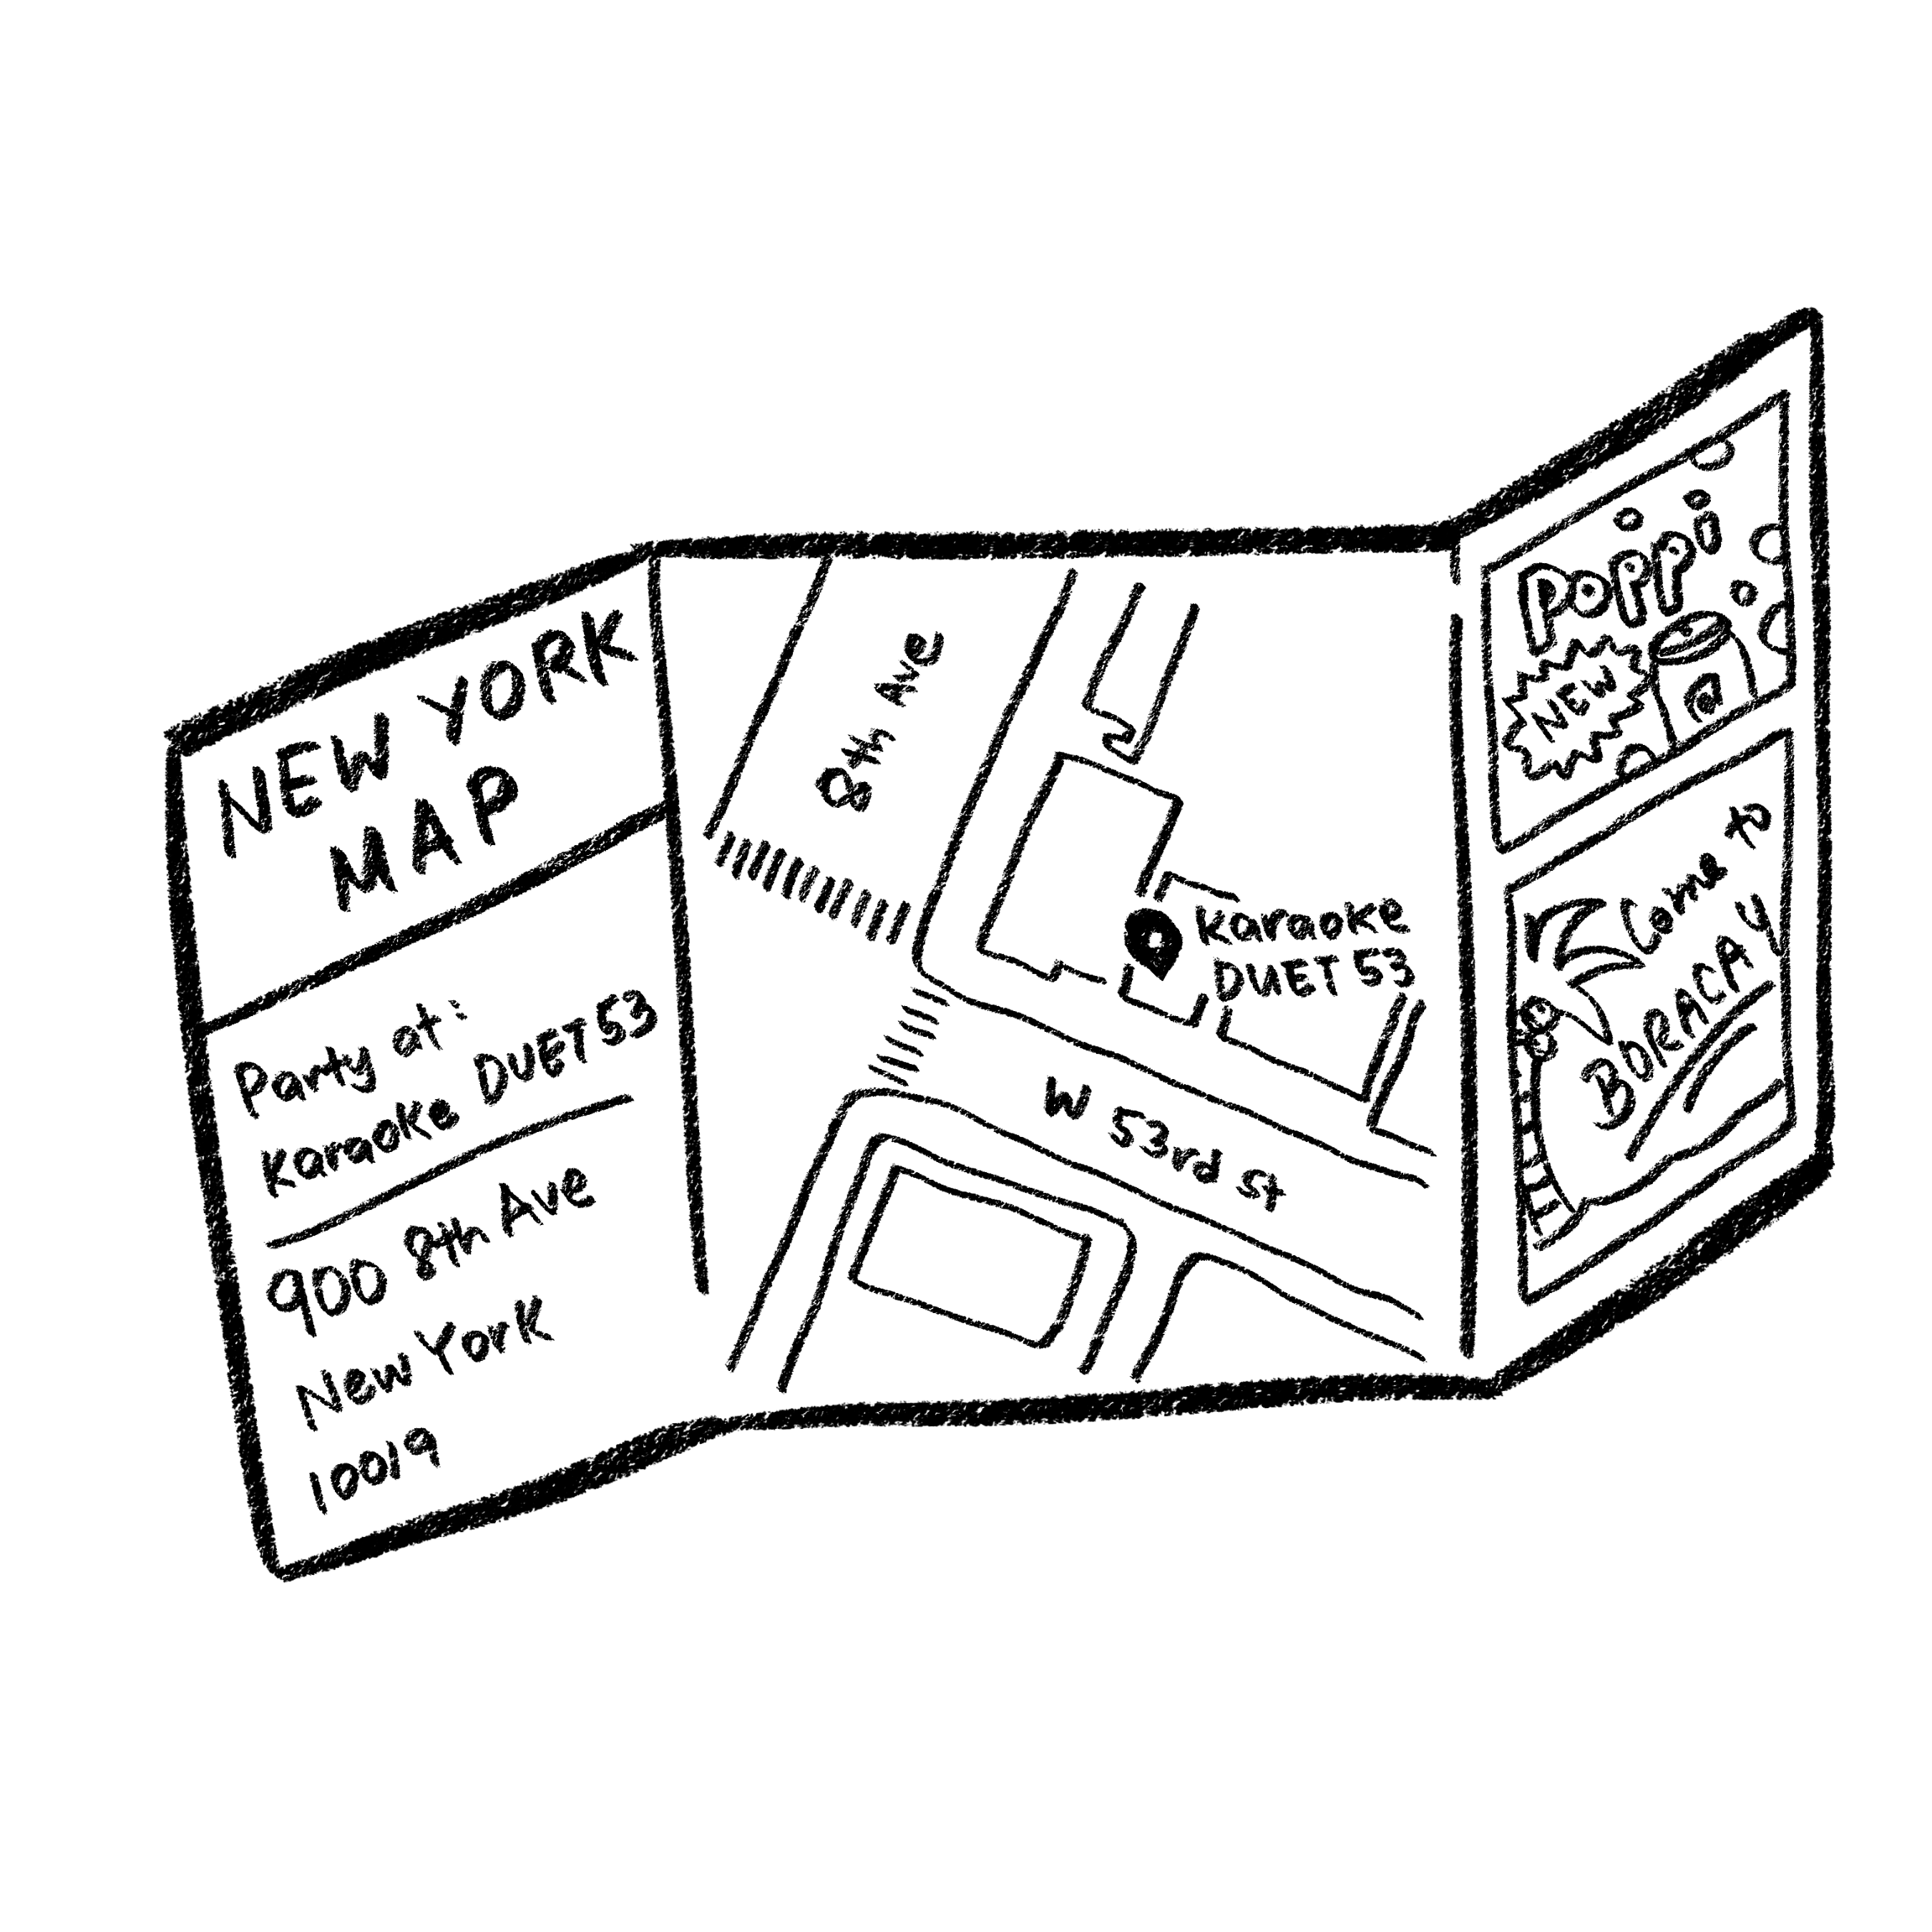 NEW YORK
MAP
Party at:
Karaoke DUET 53
900 8th Ave
New York
10019
8th Ave
Karaoke
DUET 53
W 53rd St
POPPi
NEW
Come to
BORACAY